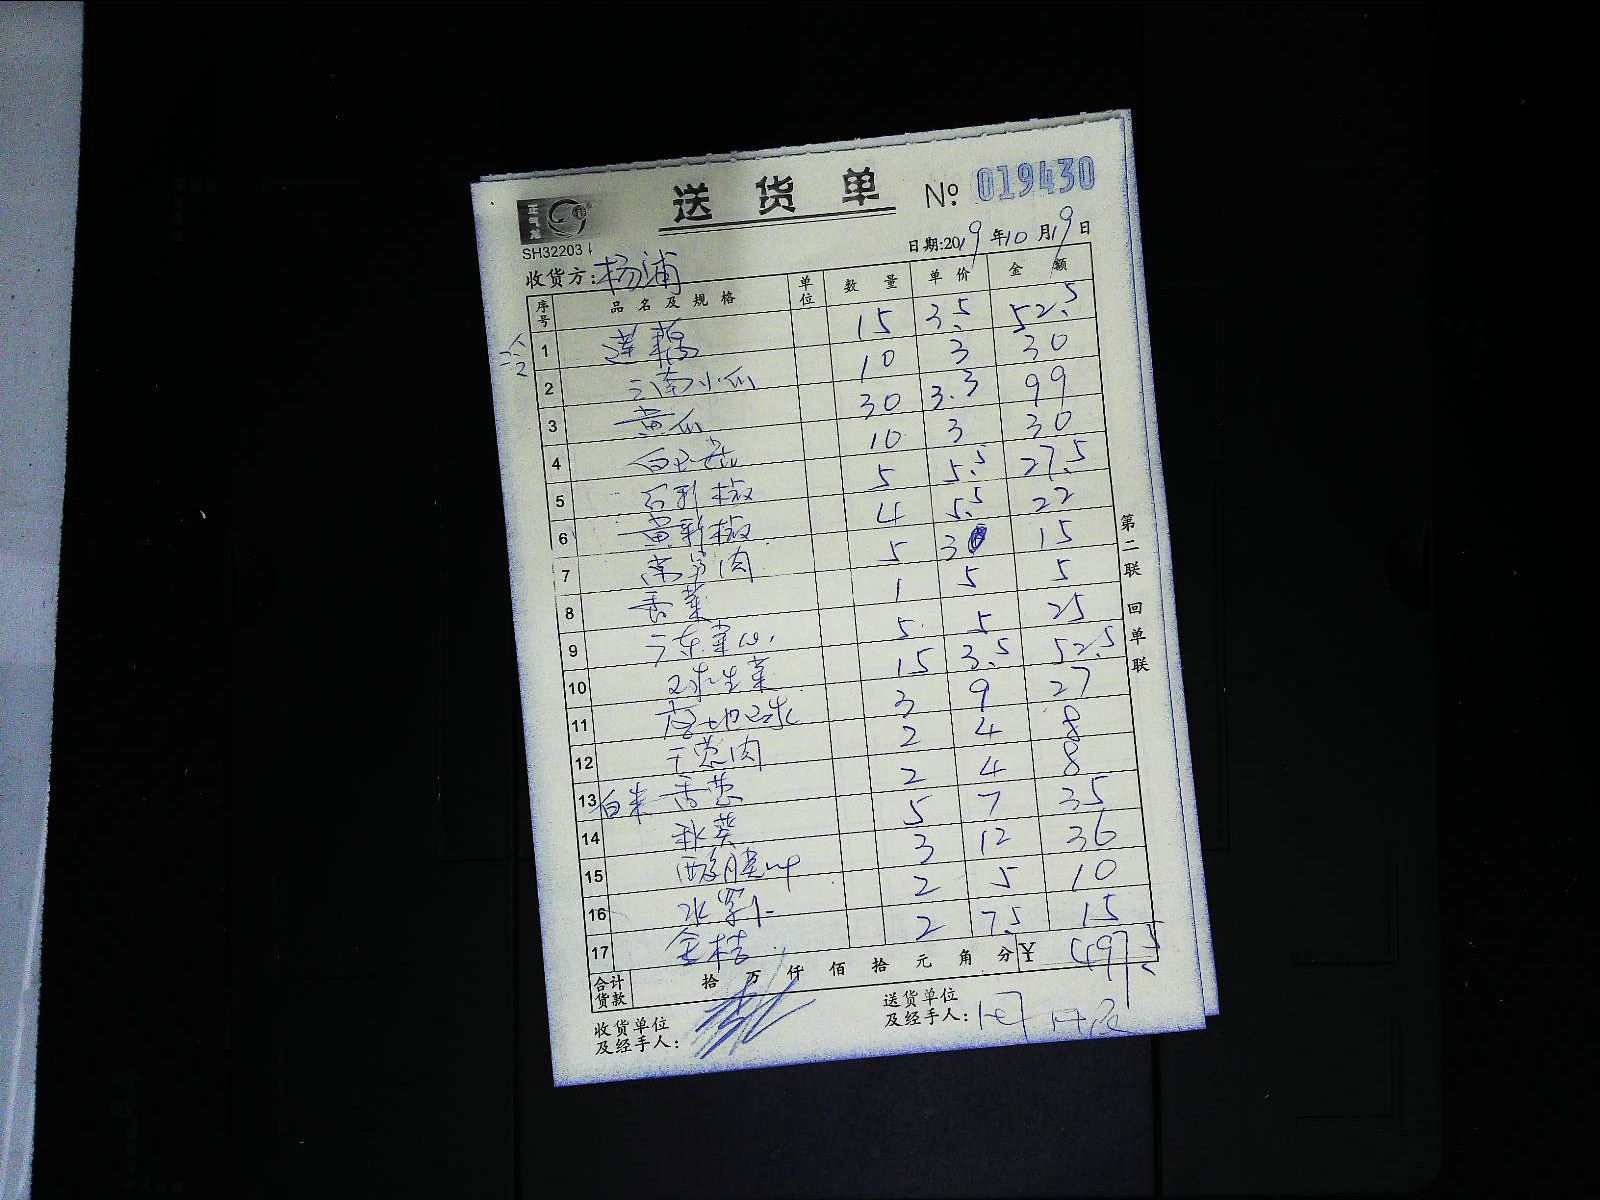 正气龙
送货单 № 019430
SH32203
日期:2019年10月19日
收货方:杨浦
序号 品名及规格 单位 数量 单价 金额
冷
1 莲藕 15 3.5 52.5
2 云南小瓜 10 3 30
3 黄瓜 30 3.3 99
4 白玉菇 10 3 30
5 红彩椒 5 5.5 27.5
6 黄彩椒 4 5.5 22
7 南瓜肉 5 3 15
8 香菜 1 5 5
9 广东菜心 5 5 25
10 球生菜 15 3.5 52.5
11 3 9 27
12 干葱肉 2 4 8
13 白米 香葱 2 4 8
14 秋葵 5 7 35
15 3 12 36
16 2 5 10
17 金桔 2 7.5 15
合计货款 拾 万 仟 佰 拾 元 角 分 ¥ 497.5
收货单位及经手人:
送货单位及经手人:
第二联 回单联